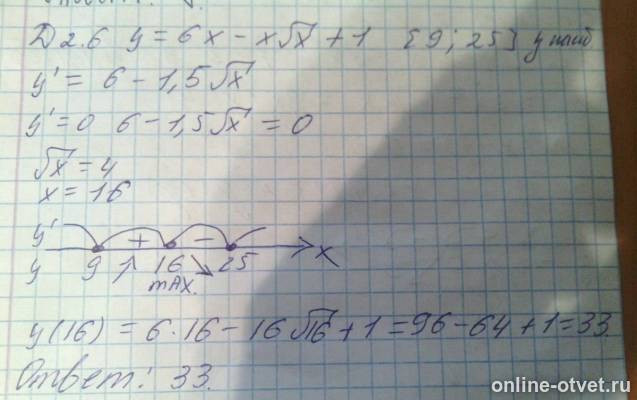 Д 2.6 y = 6x - x√x + 1 [9; 25] y наиб
y' = 6 - 1,5√x
y' = 0 6 - 1,5√x = 0
√x = 4
x = 16
y' + -
y 9 ↑ 16 ↘ 25 x
max.
y(16) = 6·16 - 16√16 + 1 = 96 - 64 + 1 = 33.
Ответ: 33.
online-otvet.ru